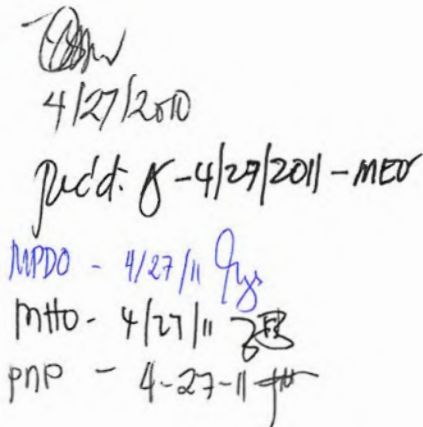 4/27/2010
Rec'd: -4/29/2011-MEO
MPDO - 4/27/11
MHO - 4/27/11
PNP - 4-27-11